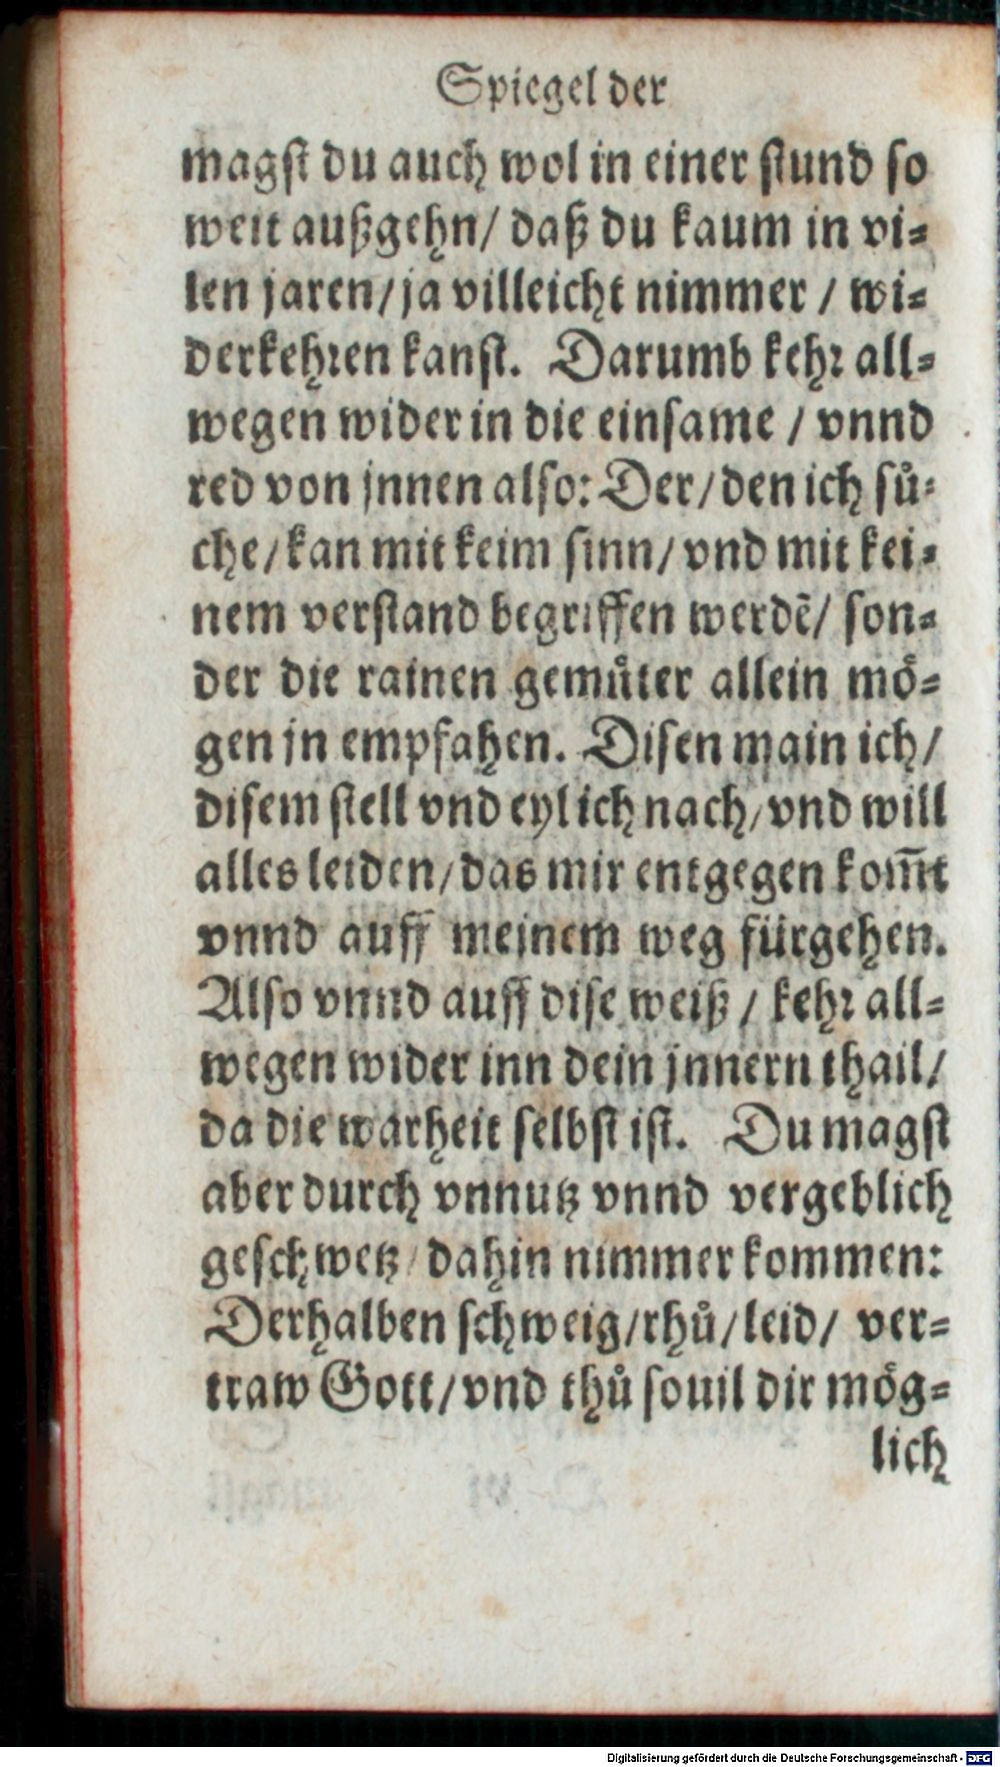 Spiegel der
magst du auch wol in einer stund so
weit außgehn/ daß du kaum in vi⸗
len jaren/ja villeicht nimmer / wi⸗
derkehren kanst. Darumb kehr all⸗
wegen wider in die einsame / vnnd
red von jnnen also: Der/den ich sů⸗
che/kan mit keim sinn/vnd mit kei⸗
nem verstand begriffen werdẽ/ son⸗
der die rainen gemůter allein moͤ⸗
gen jn empfahen. Disen main ich/
disem stell vnd eyl ich nach/vnd will
alles leiden/das mir entgegen kom̃t
vnnd auff meinem weg fürgehen.
Also vnnd auff dise weiß / kehr all⸗
wegen wider inn dein jnnern thail/
da die warheit selbst ist. Du magst
aber durch vnnutz vnnd vergeblich
geschwetz/dahin nimmer kommen:
Derhalben schweig/rhů/leid/ ver⸗
traw Gott/vnd thů souil dir moͤg⸗
lich
Digitalisierung gefördert durch die Deutsche Forschungsgemeinschaft - DFG